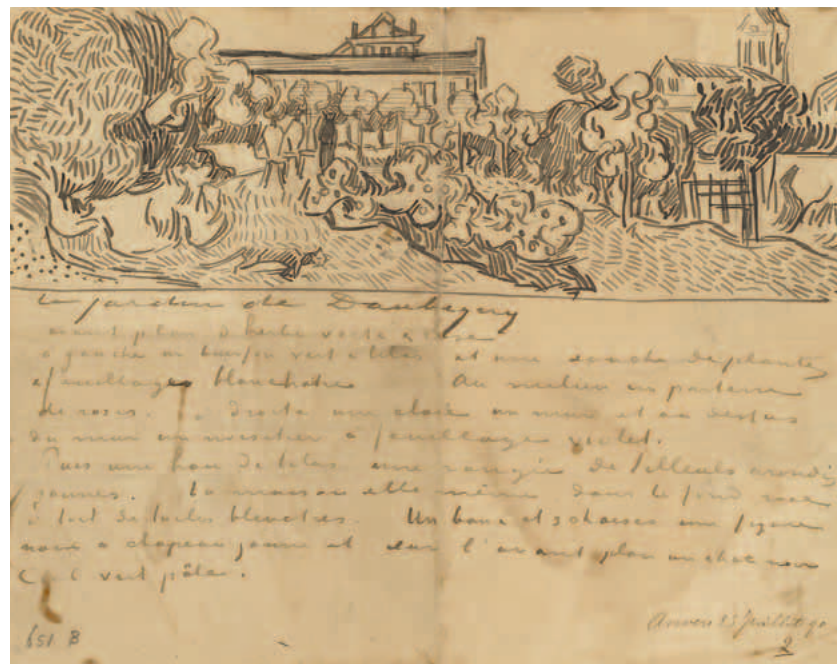 Le jardin de Daubigny
avant plan d'herbe verte & rose
à gauche un buisson vert & lilas et une souche de plantes
à feuillages blanchatres Au milieu un parterre
de roses. à droite une claie un mur et au dessus
du mur un noisetier à feuillage violet.
Puis une haie de lilas une rangée de tilleuls arrondis
jaunes. La maison elle même dans le fond rose
à toit de tuiles bleuatres. Un banc et 3 chaises une figure
noire à chapeau jaune et sur l'avant plan un chat noir
Ciel vert pâle.
Auvers 23 Juillet 90
651 B
2